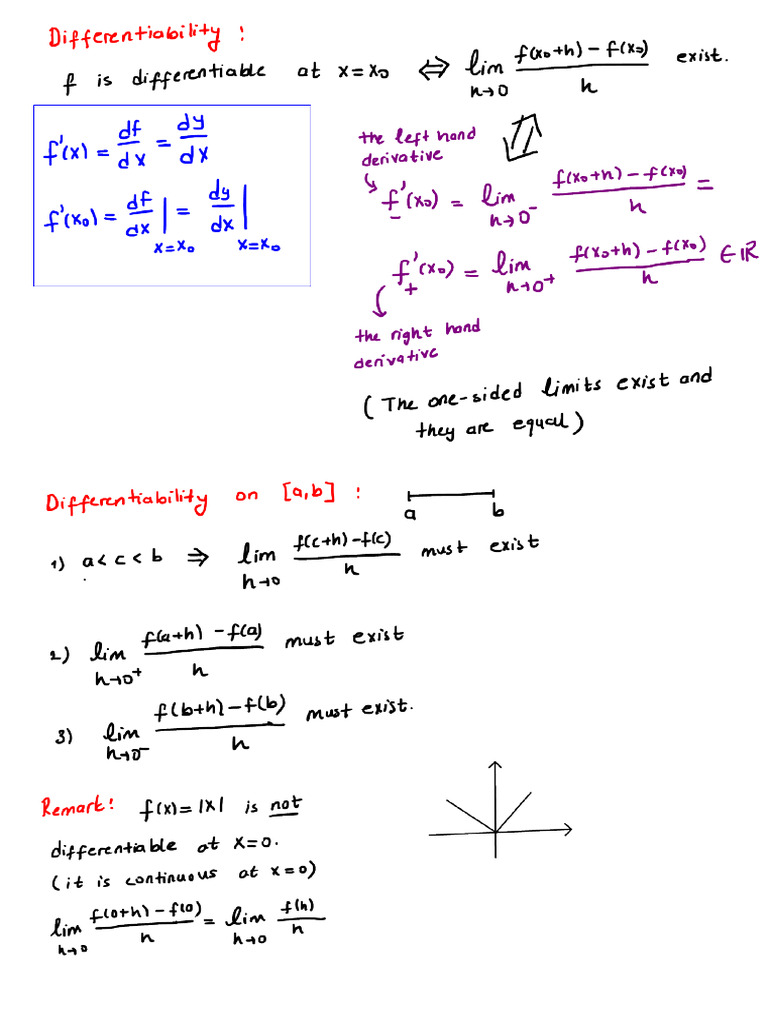 Differentiability :
f is differentiable at x=x₀ ⇔ lim_{h→0} (f(x₀+h) − f(x₀))/h exist.
f'(x) = df/dx = dy/dx
f'(x₀) = df/dx |_{x=x₀} = dy/dx |_{x=x₀}
the left hand
derivative
f'₋(x₀) = lim_{h→0⁻} (f(x₀+h) − f(x₀))/h =
f'₊(x₀) = lim_{h→0⁺} (f(x₀+h) − f(x₀))/h ∈ ℝ
the right hand
derivative
(The one-sided limits exist and
they are equal)
Differentiability on [a,b] :
a b
1) a < c < b ⇒ lim_{h→0} (f(c+h) − f(c))/h must exist
2) lim_{h→0⁺} (f(a+h) − f(a))/h must exist
3) lim_{h→0⁻} (f(b+h) − f(b))/h must exist.
Remark: f(x) = |x| is not
differentiable at x=0.
(it is continuous at x=0)
lim_{h→0} (f(0+h) − f(0))/h = lim_{h→0} f(h)/h